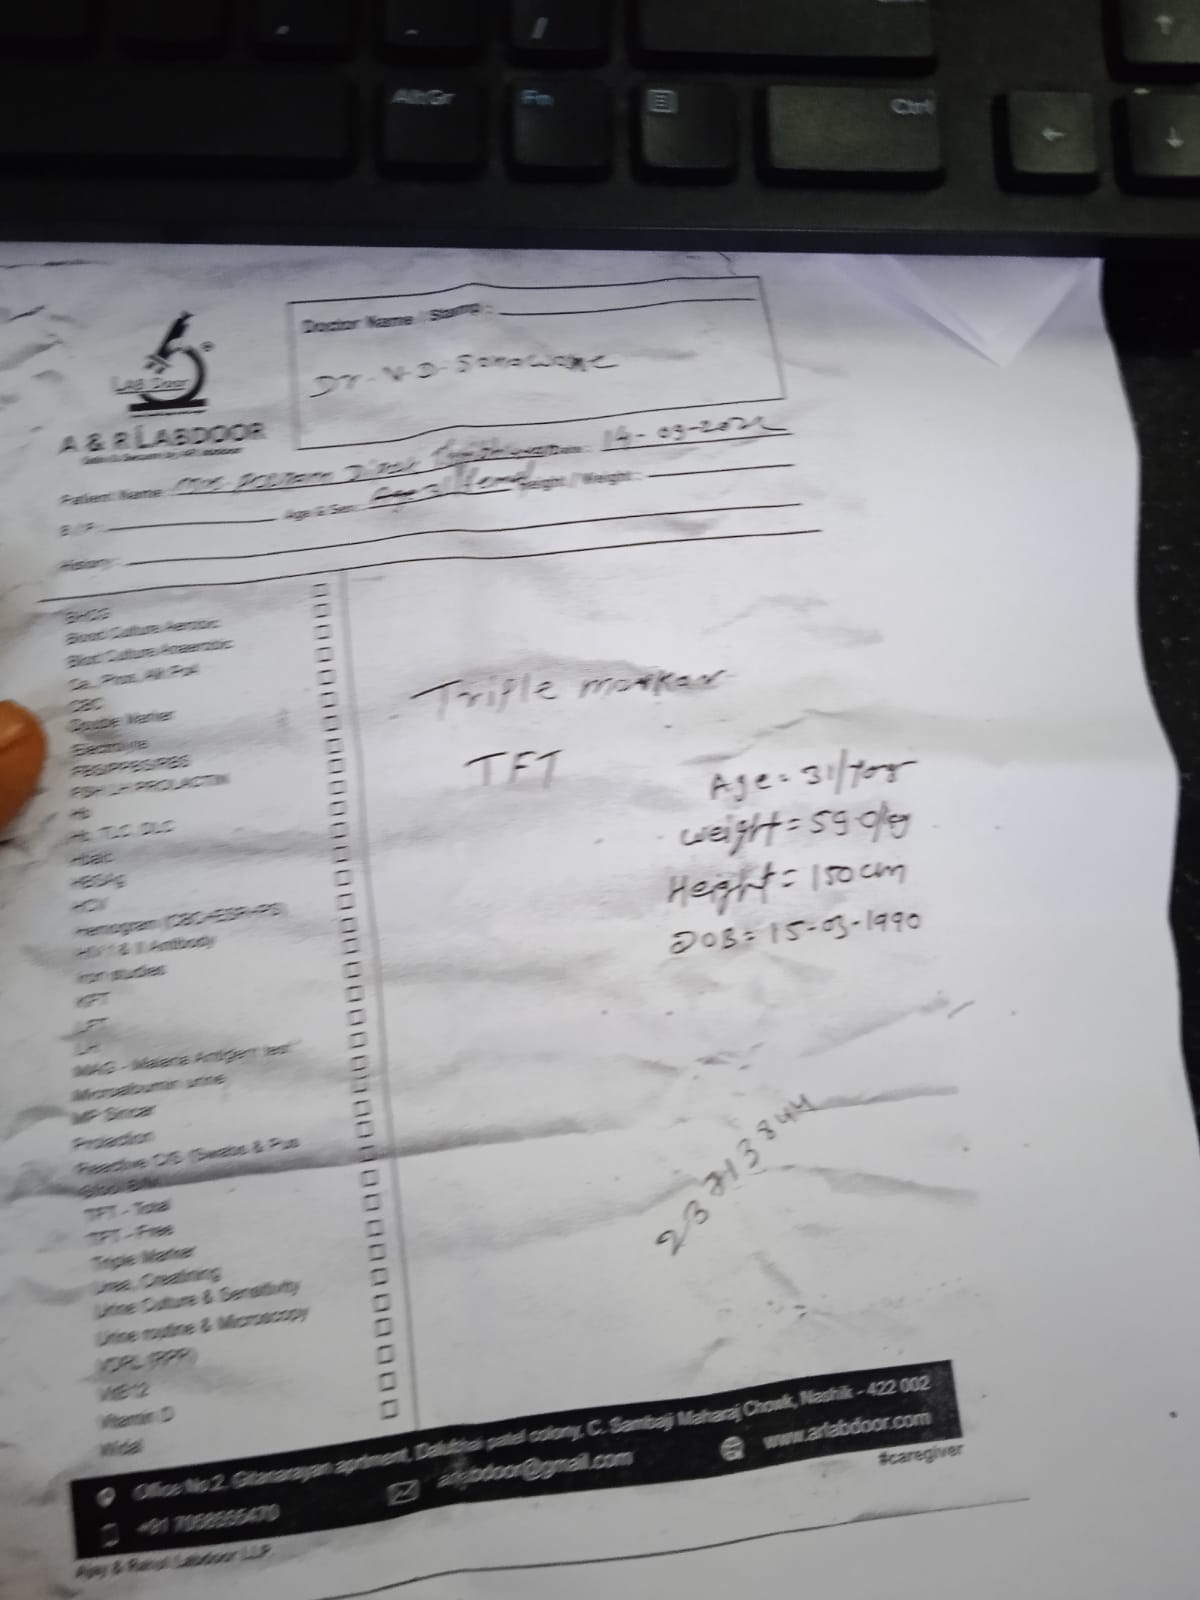 AltGr
Fn
Ctrl
LAB Door
A & R LABDOOR
Doctor Name / Stamp :
Dr. V. D. Sonawane
Patient Name : Date : 14-09-2021
B / P : Age & Sex : Age 31/ Height / Weight :
History :
BHCG
Blood Culture Aerobic
Blod Culture Anaerobic
Ca., Pros, Alk Pol
CBC
Double Marker
Electrolyte
FBS/PPBS/RBS
FSH LH PROLACTIN
Hb
Hb, TLC, DLC
HbaIc
HBSAg
HCV
Hemogram (CBC+ESR+PS)
HIV I & II Antibody
Iron studies
KFT
LFT
LH
MAG - Maleria Antigen test
Microalbumin urine
MP Smear
Prolaction
Reactive C/S (Swabs & Pus
TFT - Total
TFT - Free
Triple Marker
Urea, Creatining
Urine Culture & Sensitivity
Urine routine & Microscopy
VDRL (RPR)
VitB12
Vitamin D
Widal
Trifle markar
TFT
Age = 31/
weight = 59.0/kg
Height = 150 cm
DOB = 15-03-1990
23713844
Office No 2, Gitanarayan aprtment, patel colony, C. Sambaji Maharaj Chowk, Nashik - 422 002
+91 7058555470 arlabdoor@gmail.com www.arlabdoor.com
Ajay & Rahul Labdoor LLP
#caregiver